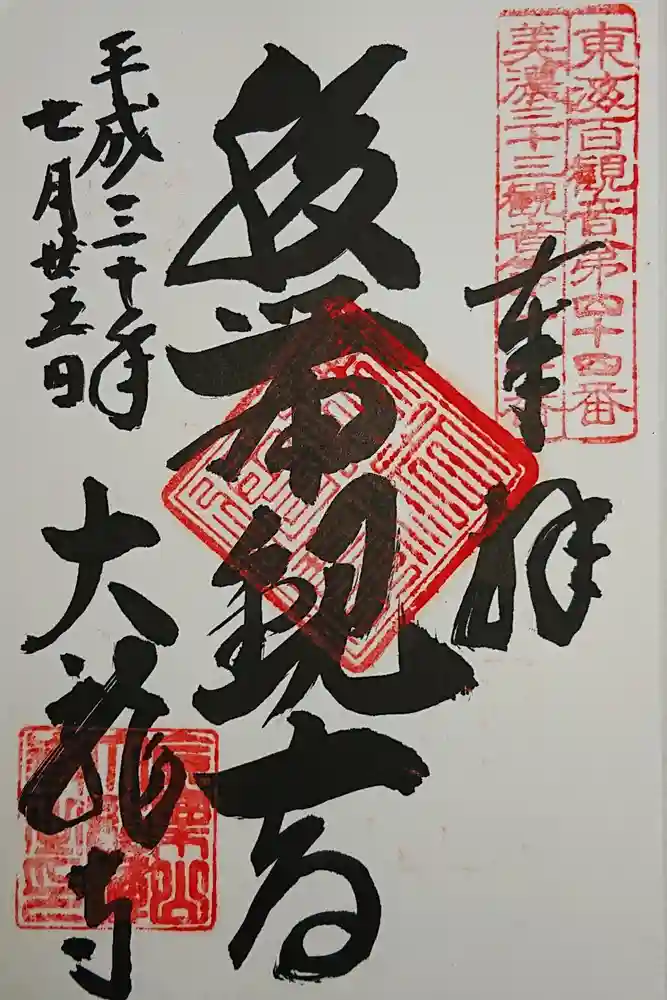 東海百観音第四十四番
美濃三十三観音第十一番
奉拝
腹帯観音
平成三十年
七月廿五日
大龍寺